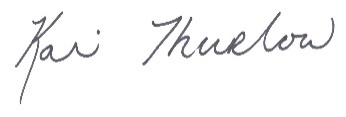 Kari Thurlow